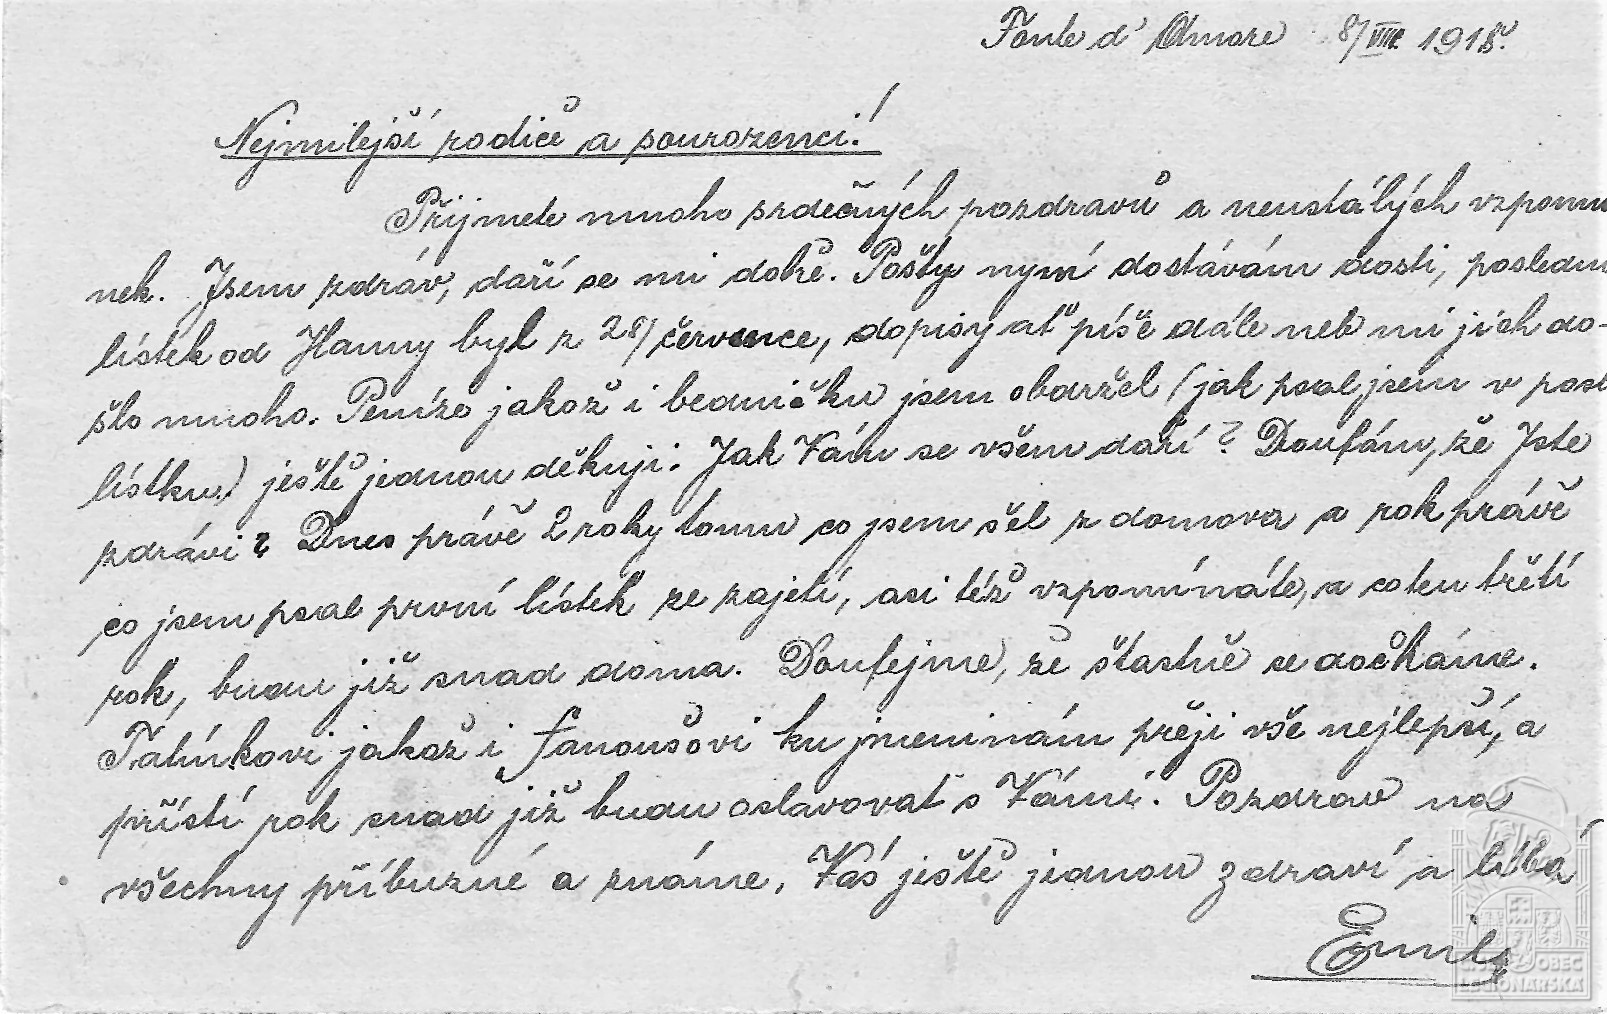 Fonte d' Amore 8/VIII. 1918.
Nejmilejší rodiče a sourozenci!
Přijmete mnoho srdečných pozdravů a neustálých vzpomí
nek. Jsem zdráv, daří se mi dobře. Pošty nyní dostávám dosti, poslední
lístek od Hanny byl z 28/ července, dopisy ať píše dále neb mi jich do-
šlo mnoho. Peníze jakož i bedničku jsem obdržel (jak psal jsem v posl
lístku) ještě jednou děkuji. Jak Vám se všem daří? Doufám, že Jste
zdrávi? Dnes právě 2 roky tomu co jsem šel z domova a rok právě
co jsem psal první lístek ze zajetí, asi též vzpomínáte, a co ten třetí
rok, budu již snad doma. Doufejme, že šťastně se dočkáme.
Tatínkovi jakož i Fanoušovi ku jmeninám přeji vše nejlepší, a
příští rok snad již budu oslavovat s Vámi. Pozdrav na
všechny příbuzné a známe, Vás ještě jednou zdraví a líbá
Emil
OBEC
LEGIONÁŘSKÁ